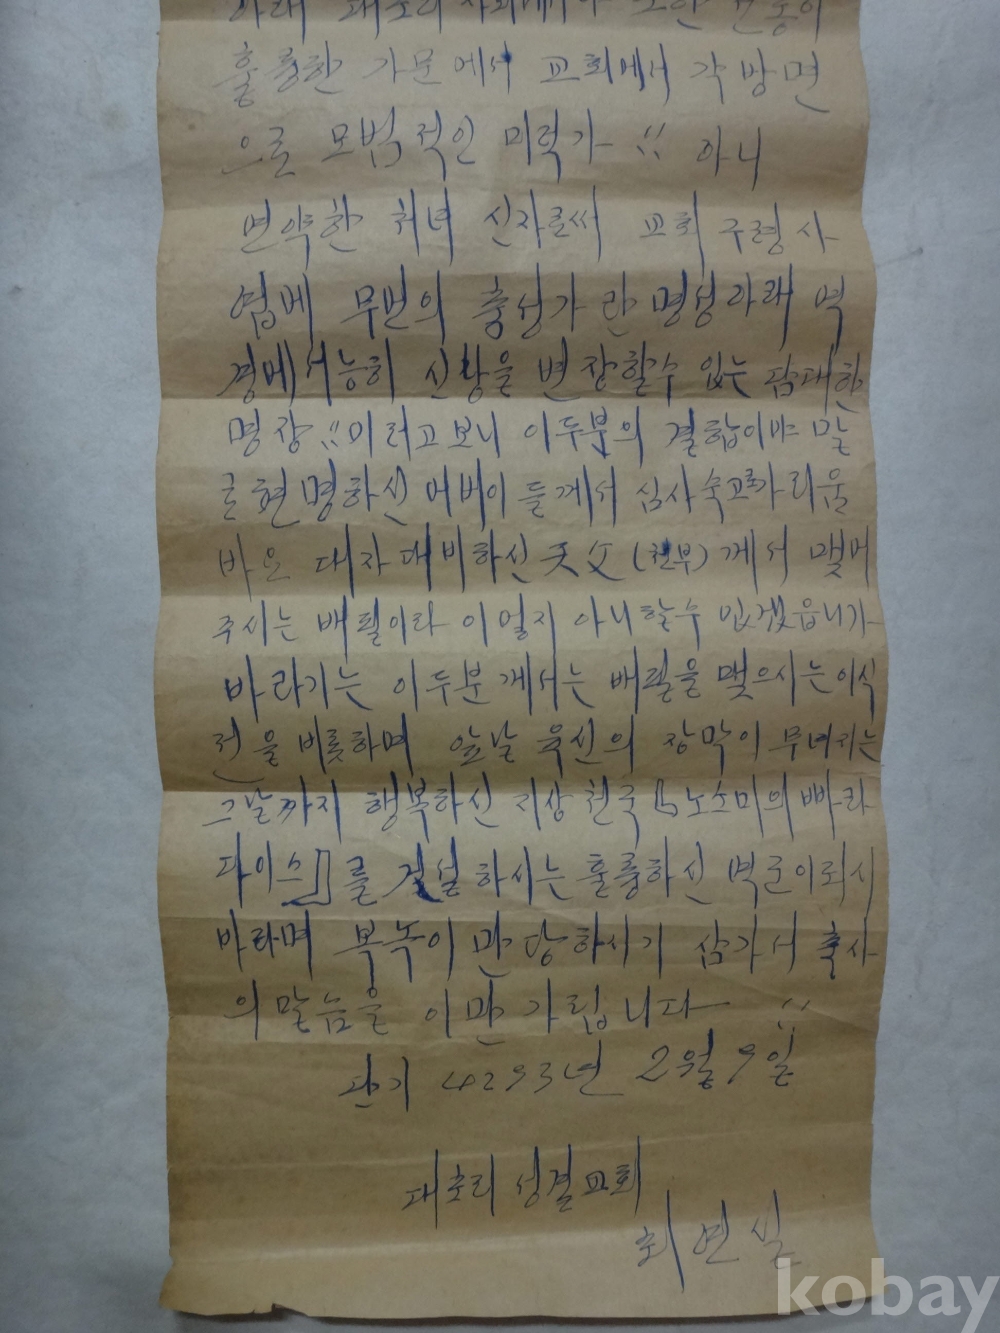 아래 대초리
훌륭한 가문에서 교회에서 각방면
으로 모범적인 미력가 !! 아니
연약한 처녀 신자로써 교회 구령사
업에 무번의 충성가란 명성아래 역
경에서 능히 신앙을 변장할수 있는 담대한
명장 !! 이러고보니 이두분의 결합이야 말
로 현명하신 어버이들께서 심사숙고
바요 대자대비하신 天父 (천부) 께서 맺어
주시는 배필이라 이열지 아니할수 있겠읍니가
바라기는 이두분께서는 배필을 맺으시는 이식
전을 비롯하며 앞날 육신의 장막이 무너지는
그날까지 행복하신 지상천국 「노스미의 빠라
다이스」를 건설하시는 훌륭하신 역군이되시
바라며 복녹이 만당하시기 삼가서 축사
의 말씀을 이만 가립니다 !!
단기 4293년 2월 9일
대초리 성결교회
최연실
kobay